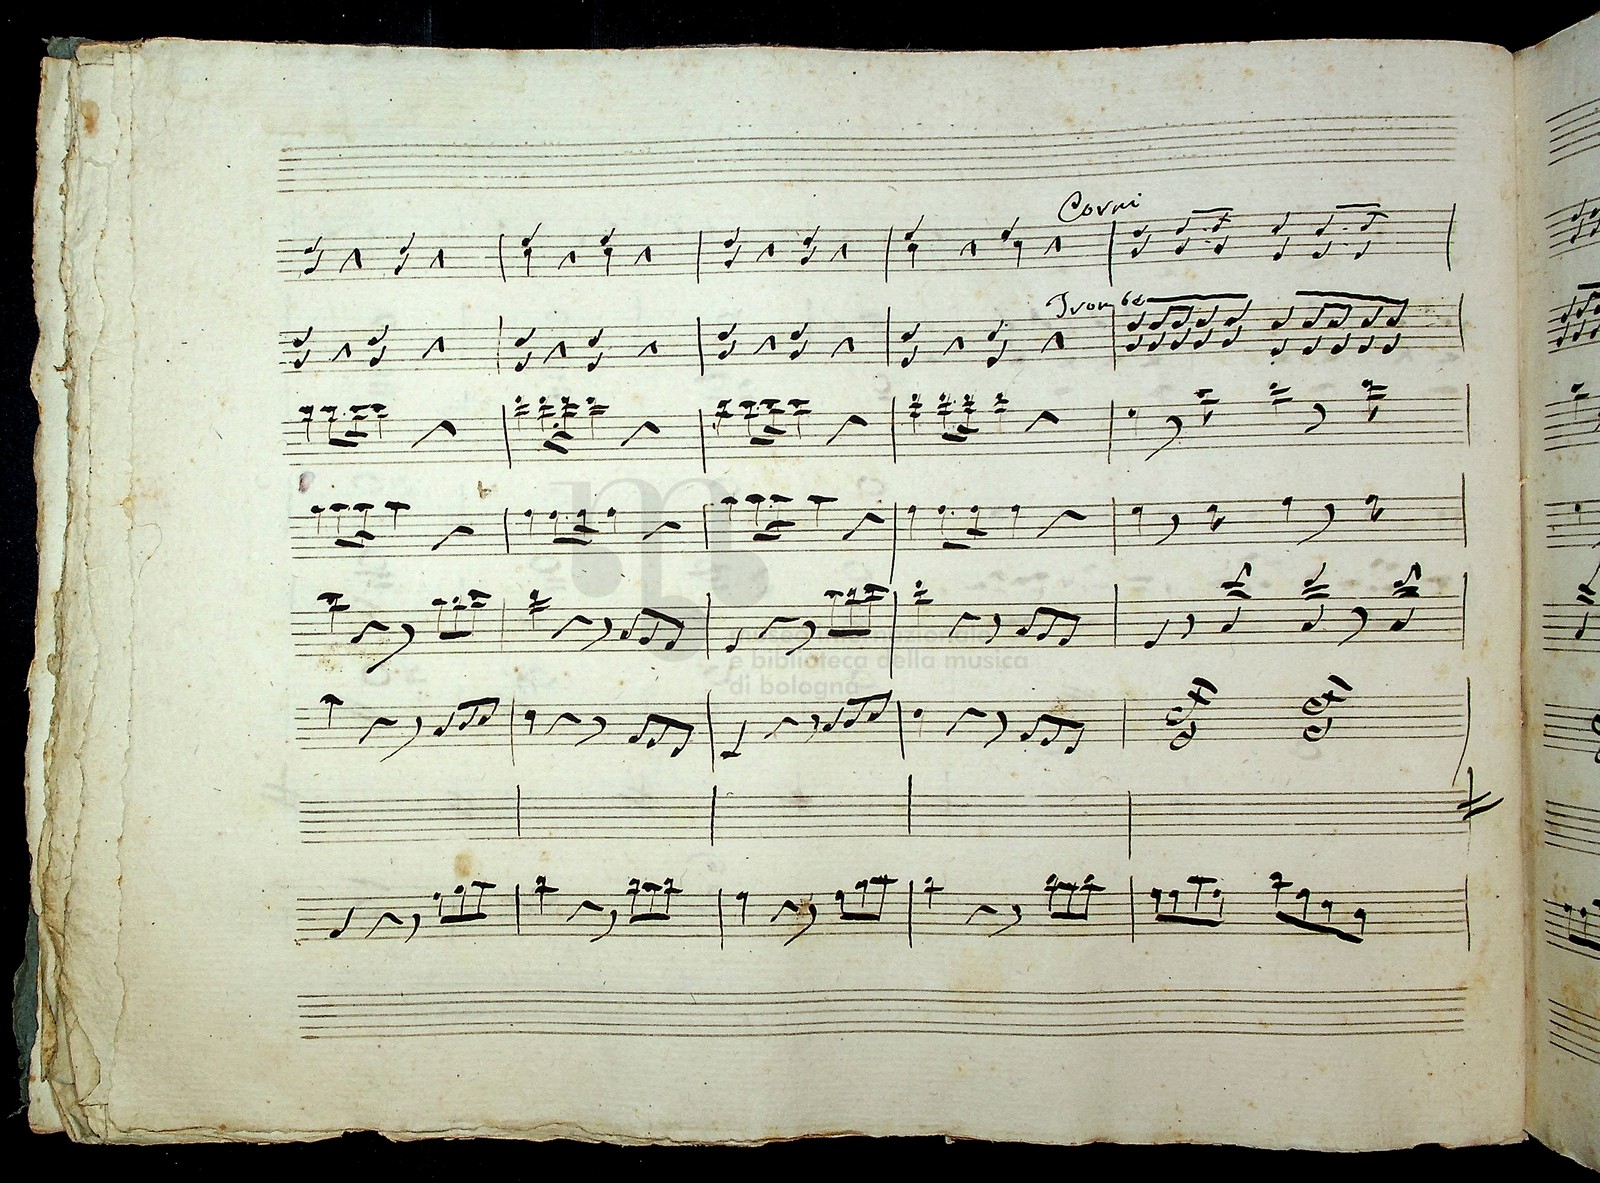 Corni
Trombe
museo internazionale
e biblioteca della musica
di bologna